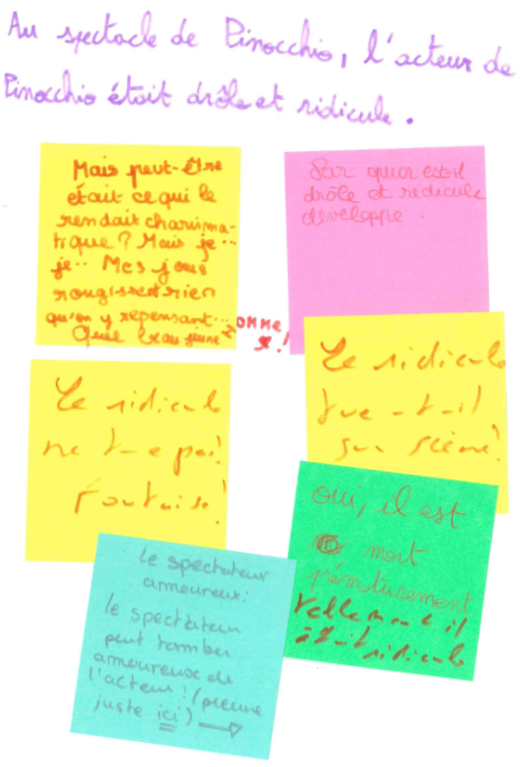 Au spectacle de Pinocchio, l'acteur de
Pinocchio était drôle et ridicule.
Mais peut-être
était ce qui le
rendait charisma-
tique ? Mais je...
je... Mes joues
rougissent rien
qu'en y repensant...
Quel beau jeune HOMME !
Par quoi est-il
drôle et redicule
développe.
Le ridicule
ne tue pas !
Foutaise !
Le ridicule
tue-t-il
sur scène !
oui, il est
mort
prématurement
tellement il
était ridicule
le spectateur
amoureux :
le spectateur
peut tomber
amoureux de
l'acteur ! (preuve
juste ici) →